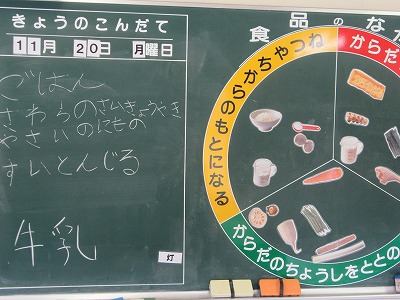 きょうのこんだて
11月 20日 月曜日
ごはん
さわらのさいきょうやき
やさいのにもの
すいとんじる
牛乳
灯
食品のなか
からだ
ちやつね
からのもとになる
からだのちょうしをととの